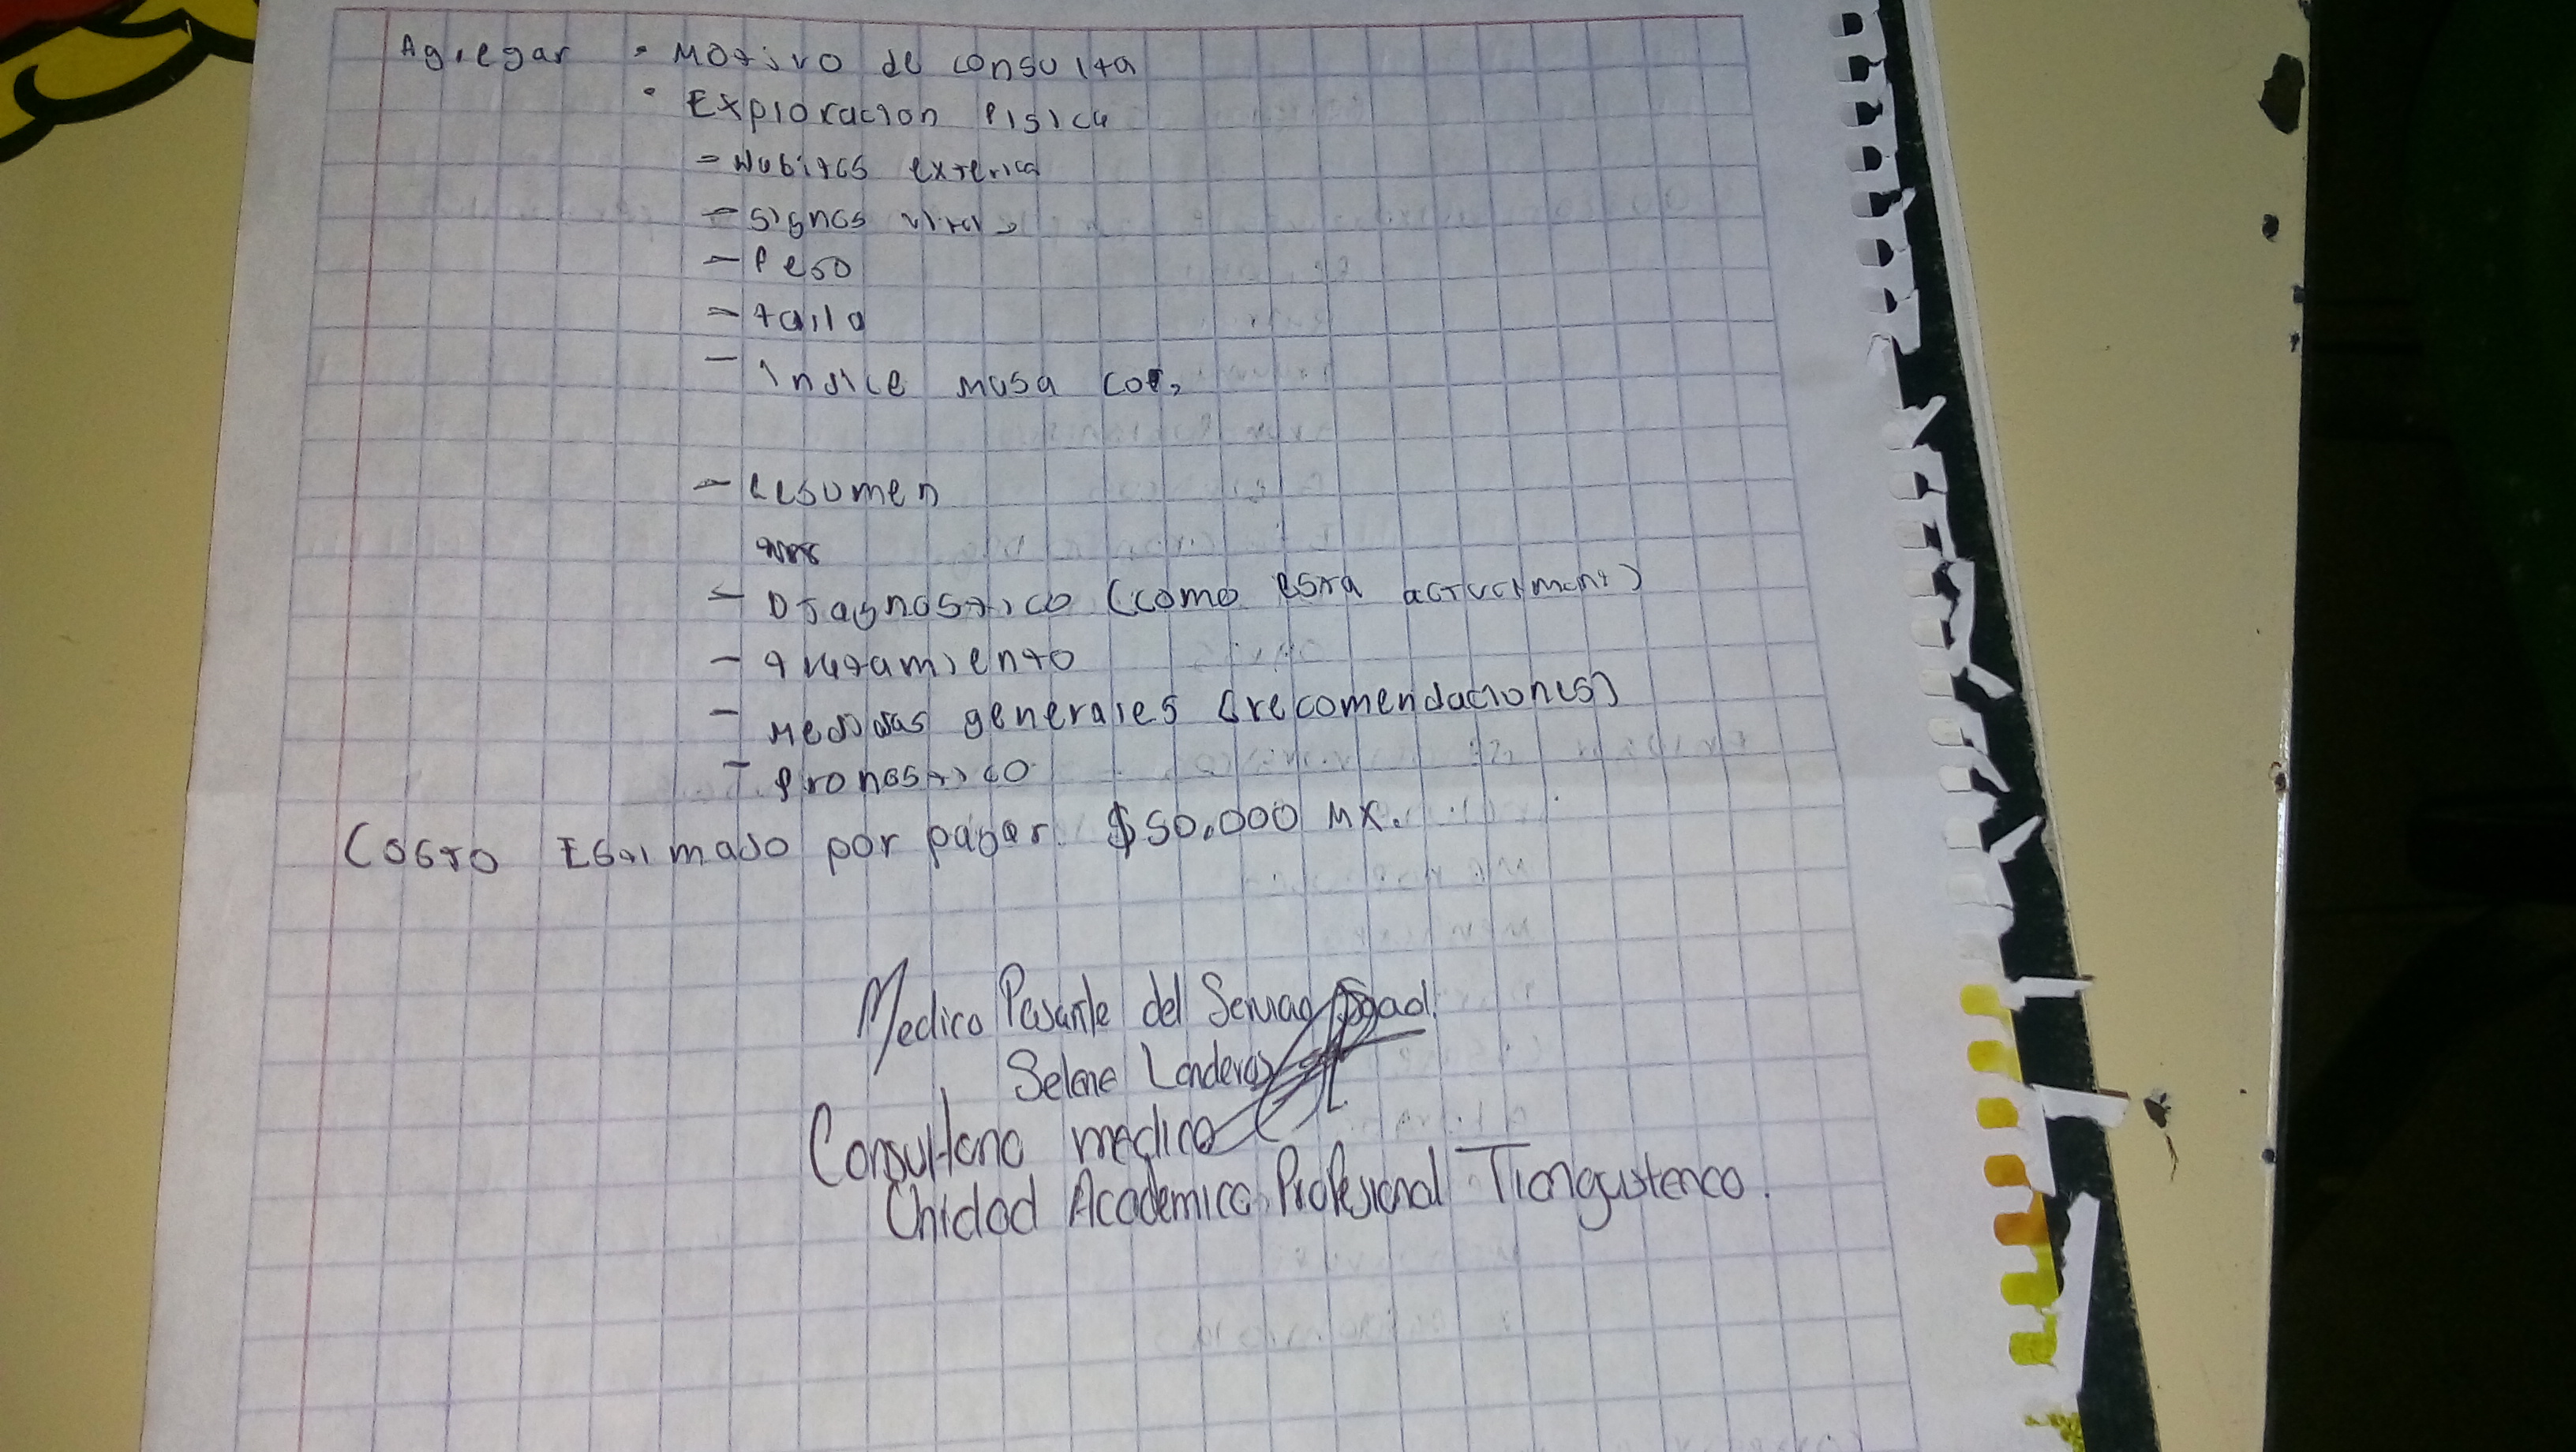 Agregar • Motivo de consulta
• Exploracion Fisica
- Habitos externa
- Signos vitales
- Peso
- talla
- indice masa cor,
- resumen
- Diagnostico (como esta actualment)
- tratamiento
- Medidas generales (recomendaciones)
- pronostico
Costo Estimado por pagar. $50,000 MX.
Medico Pasante del Servicio Social.
Selene Landeros
Consultorio medico
Unidad Academica Profesional Tianguistenco.